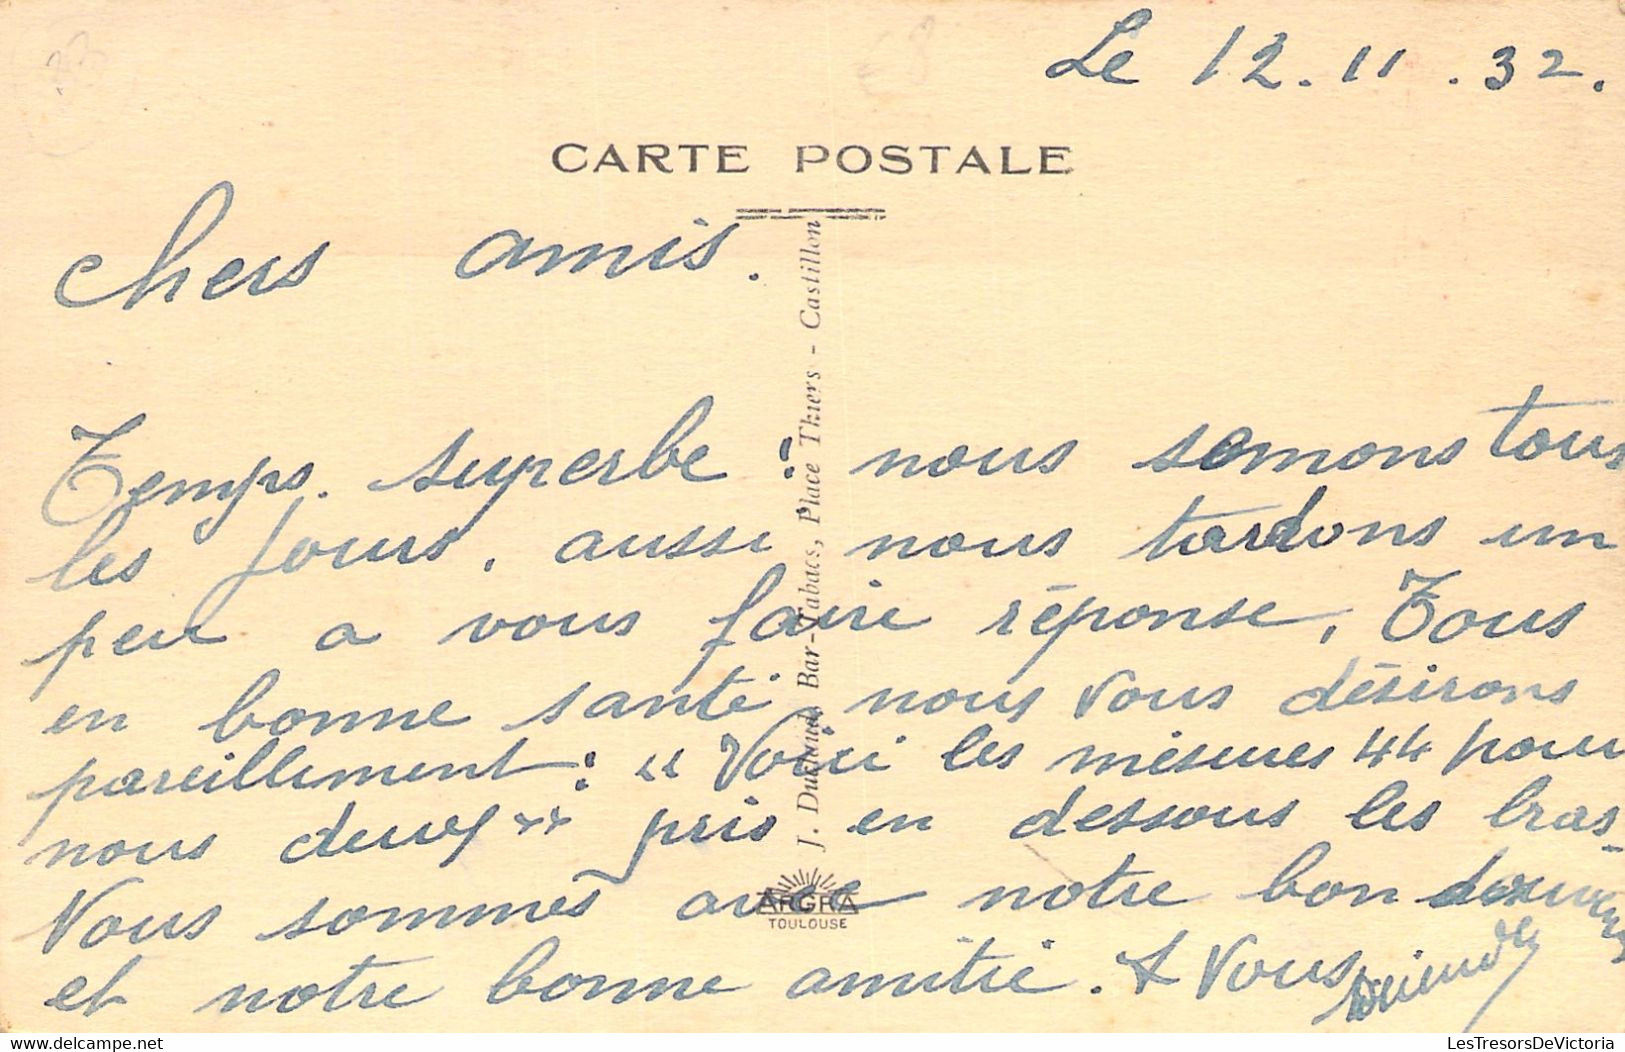 Le 12.11.32.
CARTE POSTALE
chers amis.
Temps. superbe : nous semons tous
les jours, aussi nous tardons un
peu a vous faire réponse, Tous
en bonne santé, nous vous désirons
pareillement : " Voici les mésures 44 pour
nous deux " pris en dessous les bras -
Nous sommes avec notre bon
et notre bonne amitié. A Vous
J. Duchand, Bar-Tabacs, Place Thiers - Castillon
ARGRA
TOULOUSE
delcampe.net
LesTresorsDeVictoria